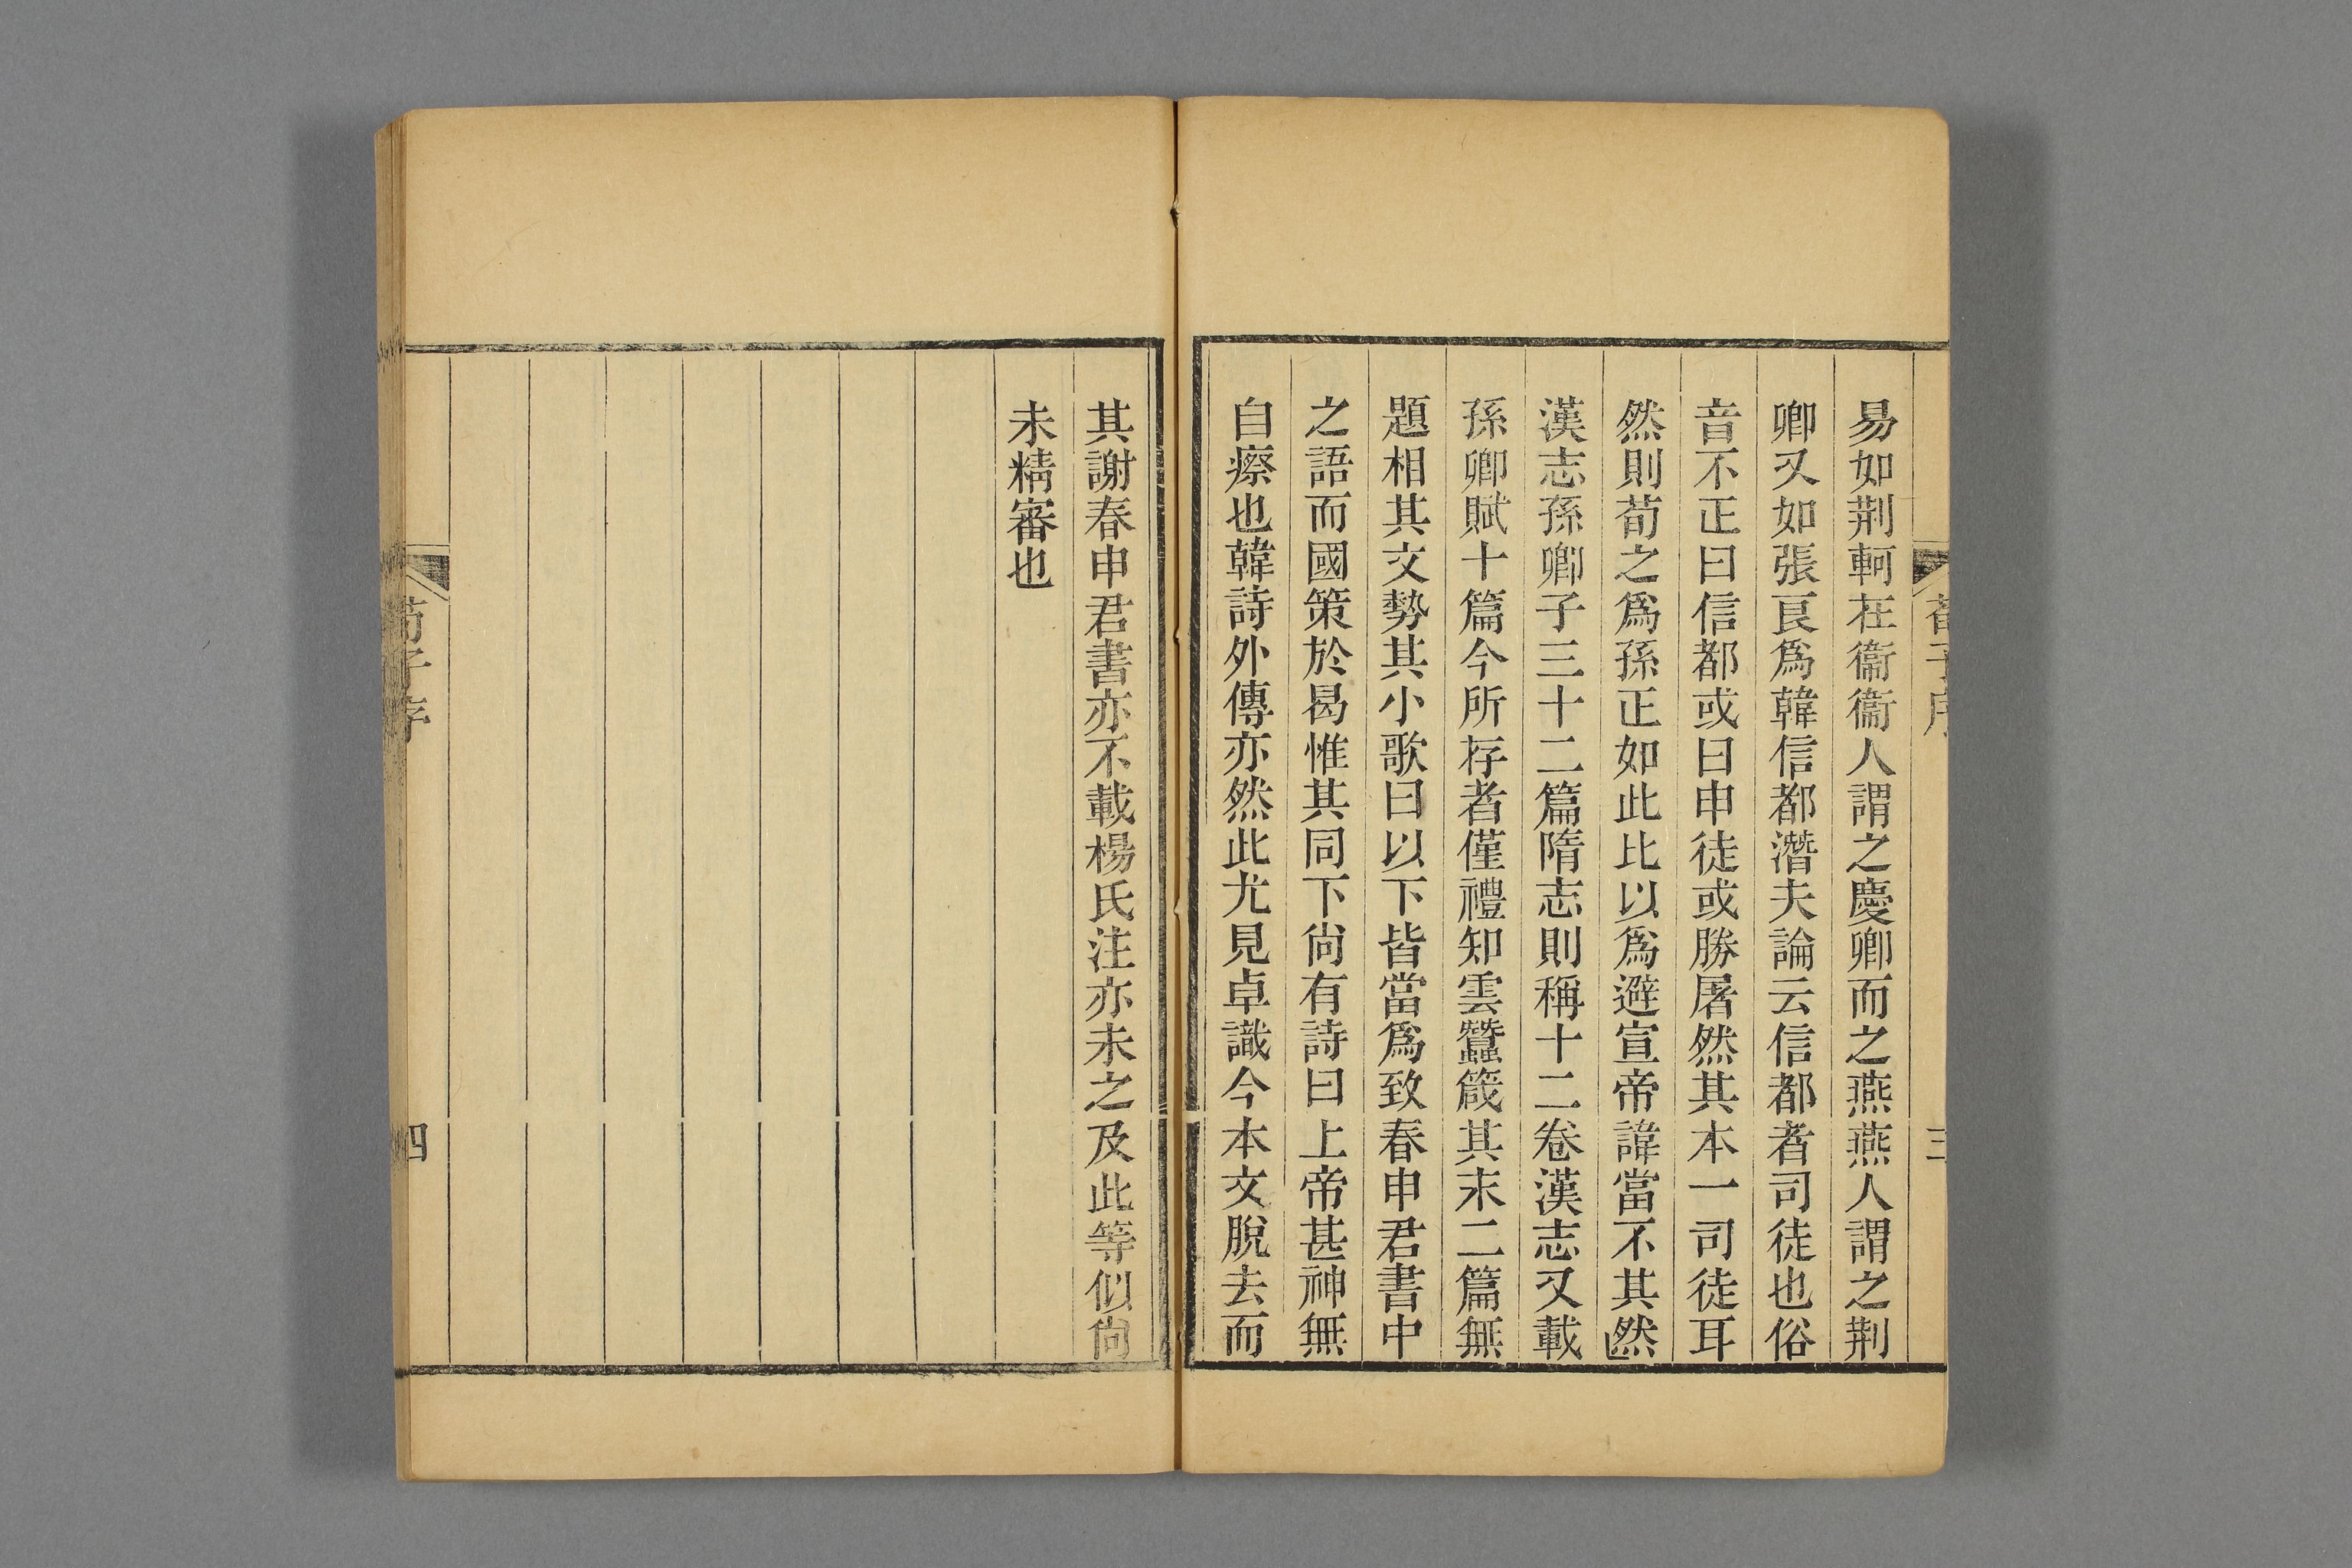 荀子序
三
易如荆軻在衞衞人謂之慶卿而之燕燕人謂之荆
卿又如張良爲韓信都潛夫論云信都者司徒也俗
音不正曰信都或曰申徒或勝屠然其本一司徒耳
然則荀之爲孫正如此比以爲避宣帝諱當不其然
漢志孫卿子三十二篇隋志則稱十二卷漢志又載
孫卿賦十篇今所存者僅禮知雲蠶箴其末二篇無
題相其文勢其小歌曰以下皆當爲致春申君書中
之語而國策於曷惟其同下尙有詩曰上帝甚神無
自瘵也韓詩外傳亦然此尤見卓識今本文脫去而
其謝春申君書亦不載楊氏注亦未之及此等似尙
未精審也
荀子序
四